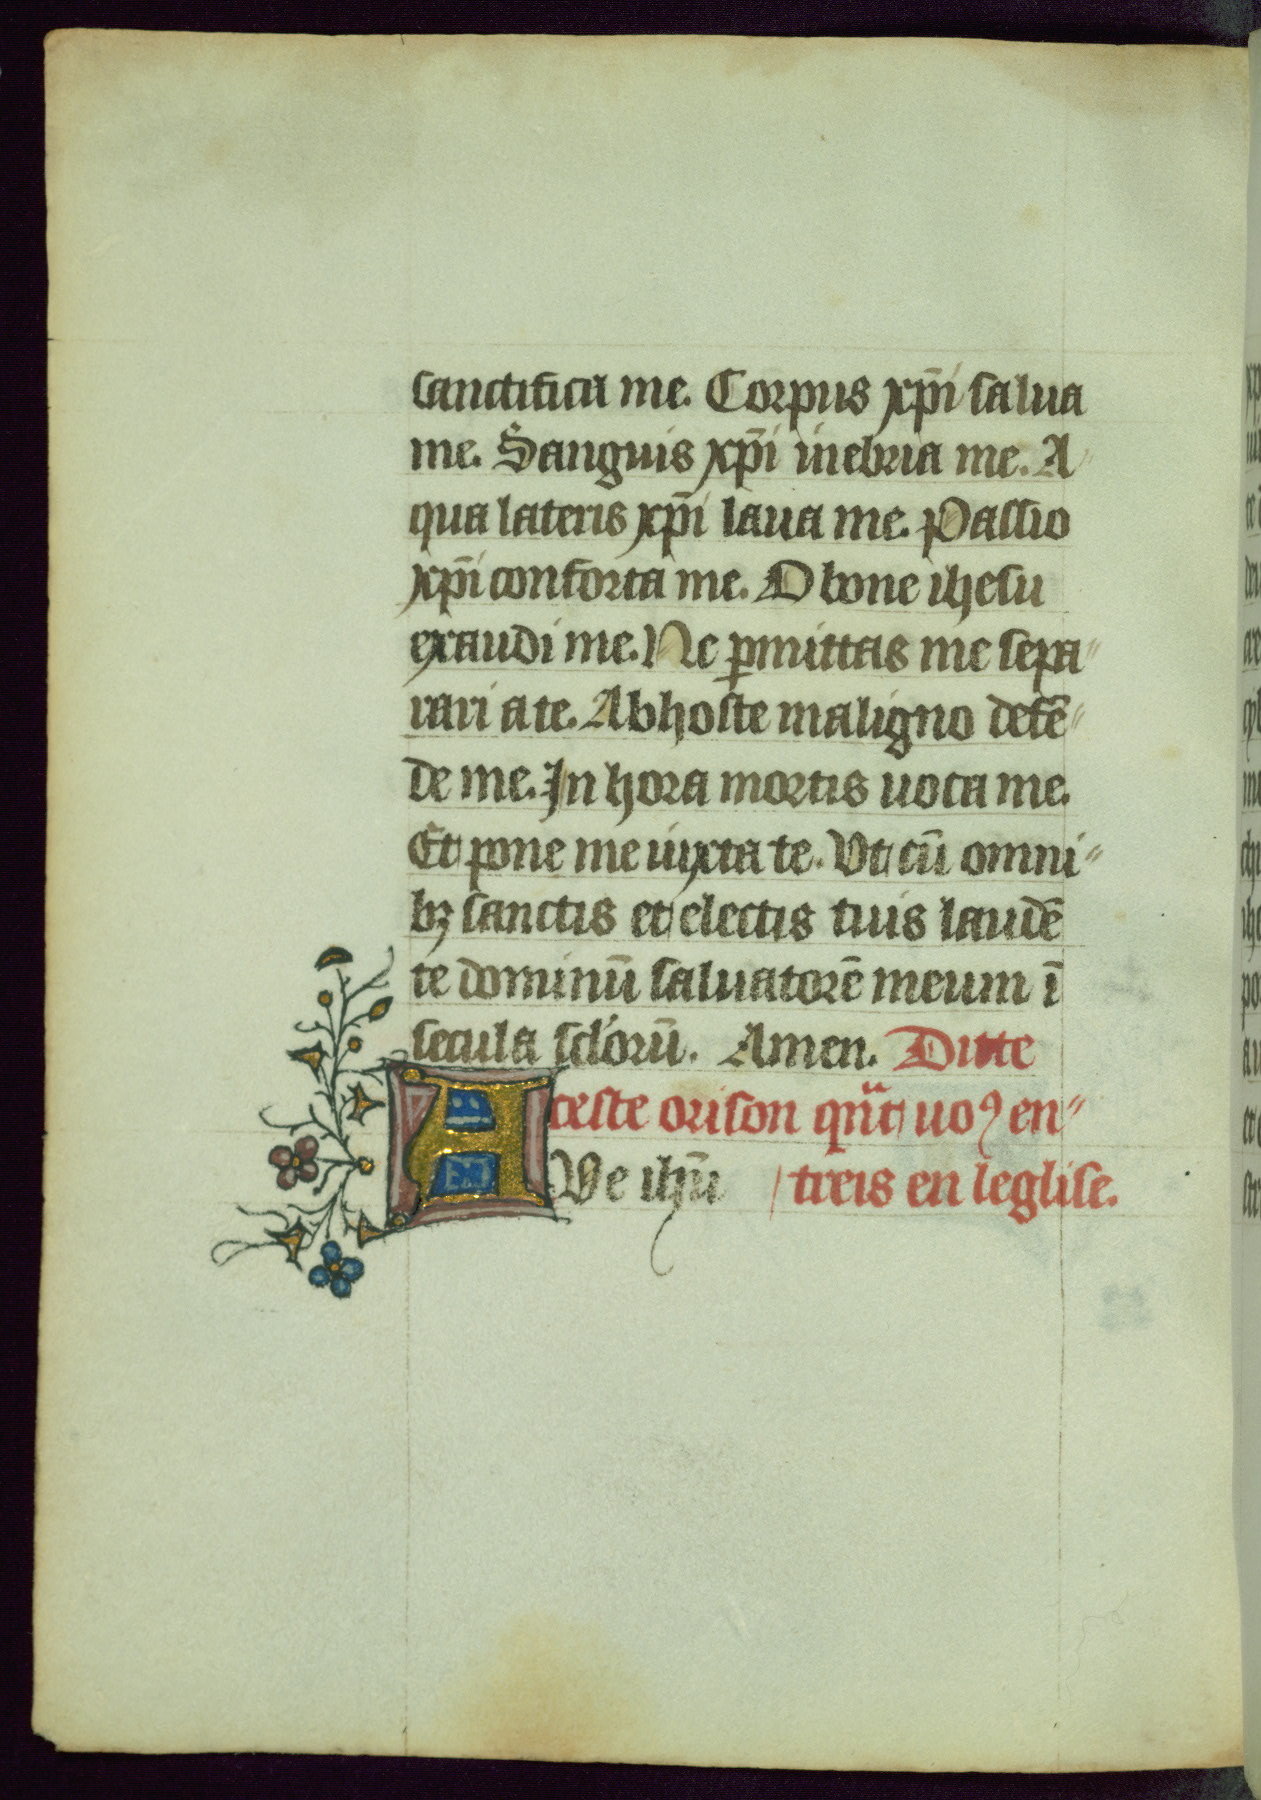 sanctifica me. Corpus xp̄i salua
me. Sanguis xp̄i inebria me. A
qua lateris xp̄i laua me. Passio
xp̄i conforta me. O bone ihesu
exaudi me. Ne ꝑmittas me sepa〃
rari a te. Ab hoste maligno defē〃
de me. In hora mortis uoca me.
Et pone me iuxta te. Vt cū omni〃
bꝫ sanctis et electis tuis laudē
te dominū saluatorē meum ī
secula sclorū. Amen. Ditte
ceste orison qn̄t uoꝯ en〃
AVe ihū treis en leglise.